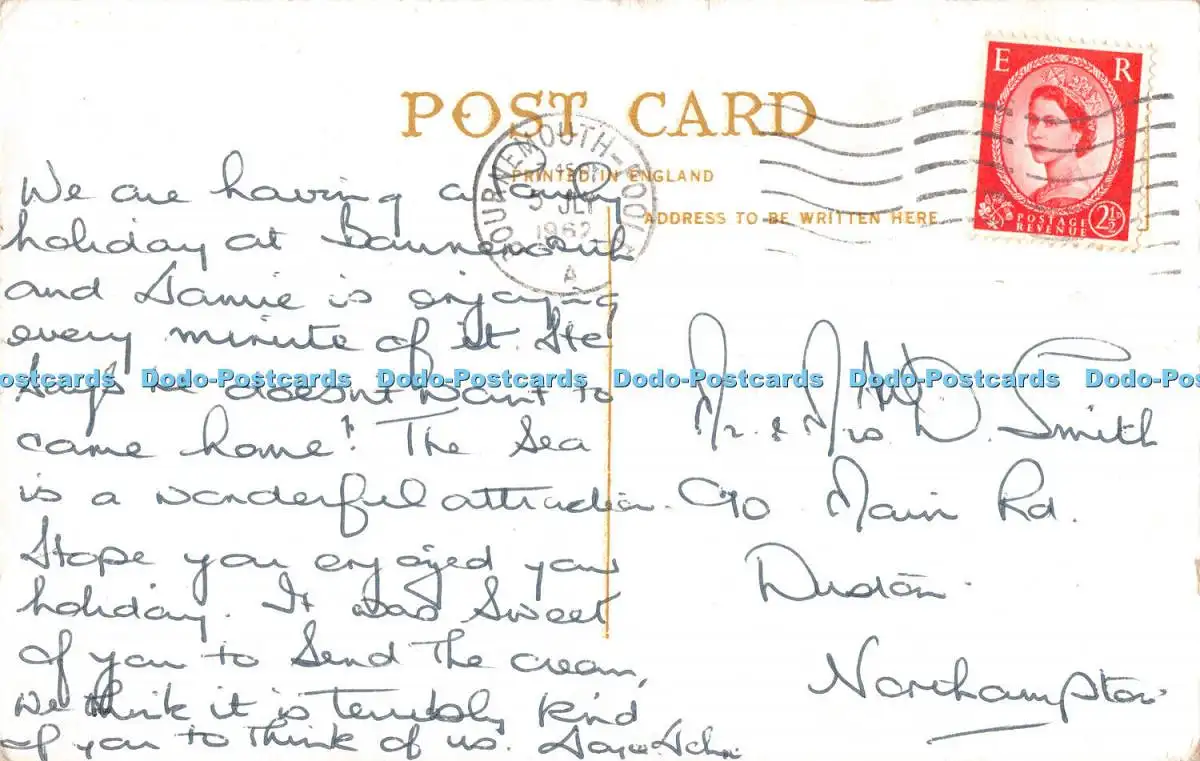 POST CARD
PRINTED IN ENGLAND
ADDRESS TO BE WRITTEN HERE
E R
POSTAGE
REVENUE
2½
BOURNEMOUTH-POOLE
5 JLY
1962
A
We are having a lovely
holiday at Bournemouth
and is enjoying
every minute of it. He
says he doesn't want to
come home! The Sea
is a wonderful attraction.
Hope you enjoyed your
holiday. It was Sweet
of you to Send the cream,
we think it is terribly kind
of you to think of us.
Mr. & Mrs. D. Smith
90 Main Rd.
Duston
Northampton
ostcards Dodo-Postcards Dodo-Postcards Dodo-Postcards Dodo-Postcards Dodo-Postc